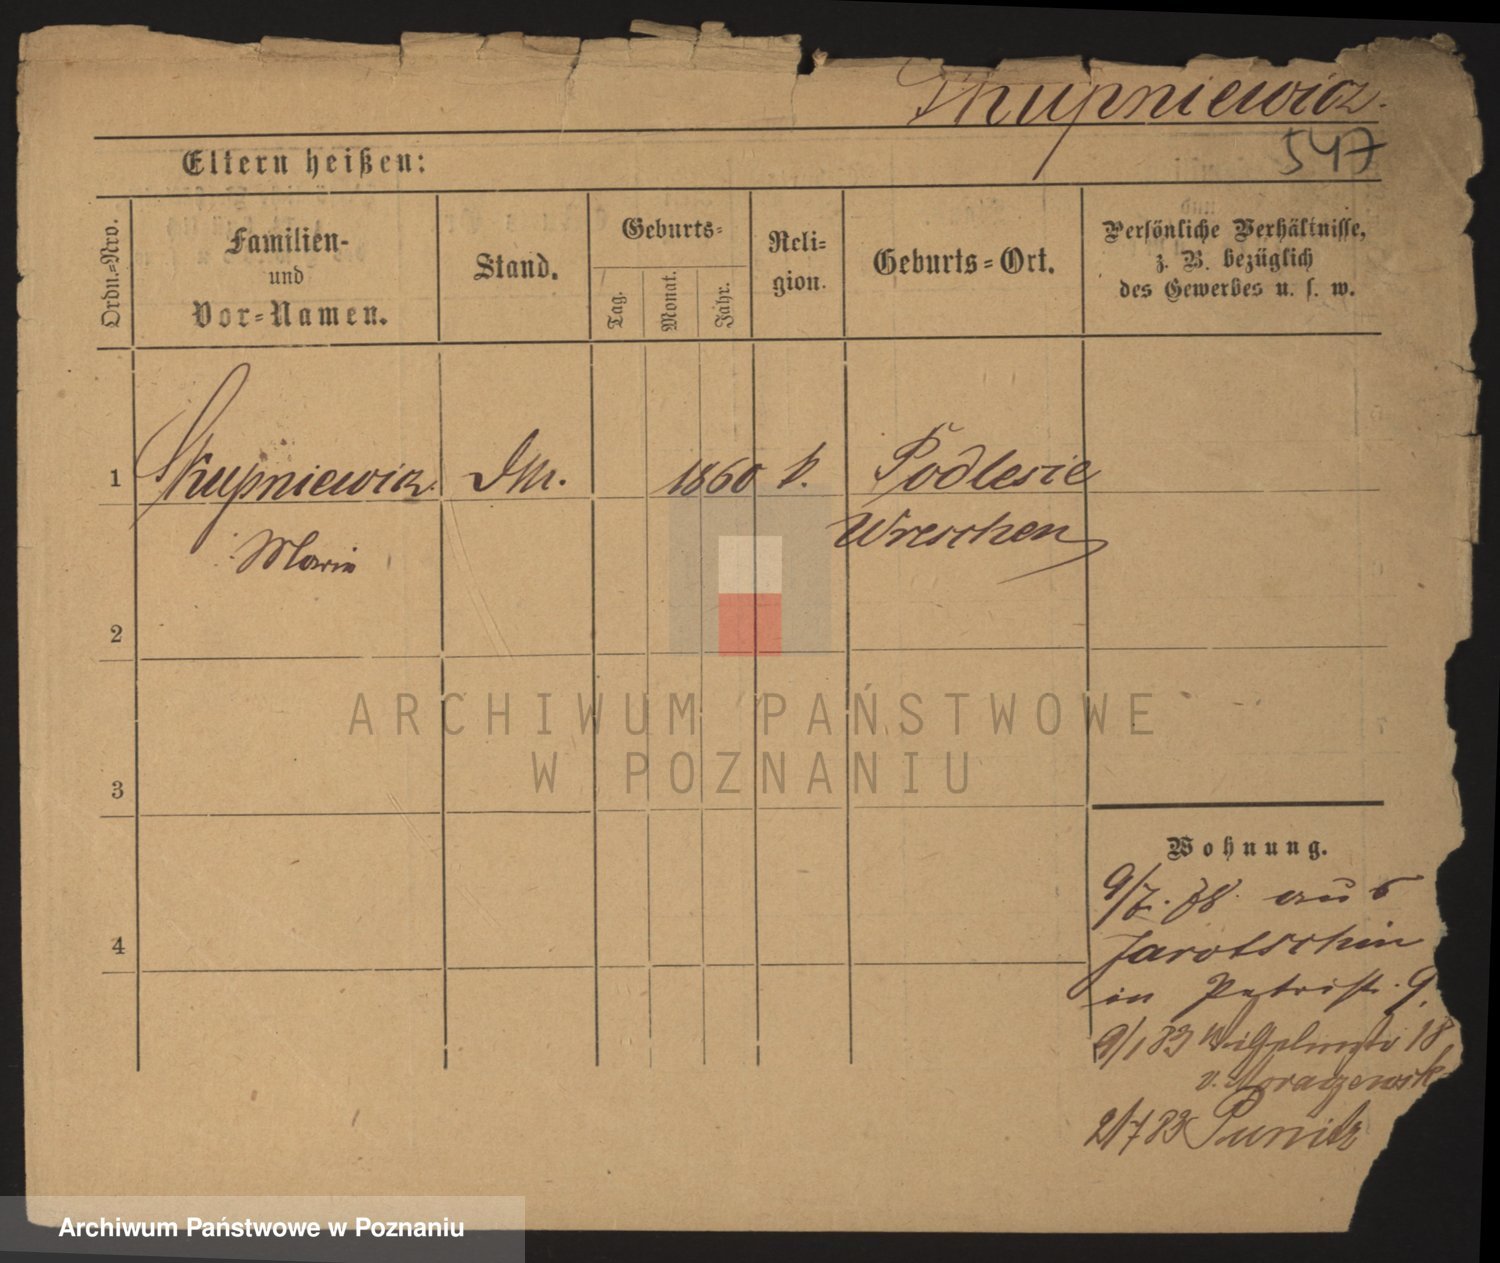 Skupniewicz.
547
Eltern heißen:
Ordn.=Nro.
Familien-
und
Vor=Namen.
Stand.
Geburts=
Tag.
Monat.
Jahr.
Reli=
gion.
Geburts=Ort.
Persönliche Verhältnisse,
z. B. bezüglich
des Gewerbes u. s. w.
1 Skupniewicz. 1860 k. Podlesie
Wreschen
Marie
2
3
4
ARCHIWUM PAŃSTWOWE
W POZNANIU
Wohnung.
9/7. 78. aus
Jarotschin
in Petrist. 9.
9/1 83 Wilhelmstr 18
v. Moraczewsk
2/7 83 Punitz
Archiwum Państwowe w Poznaniu